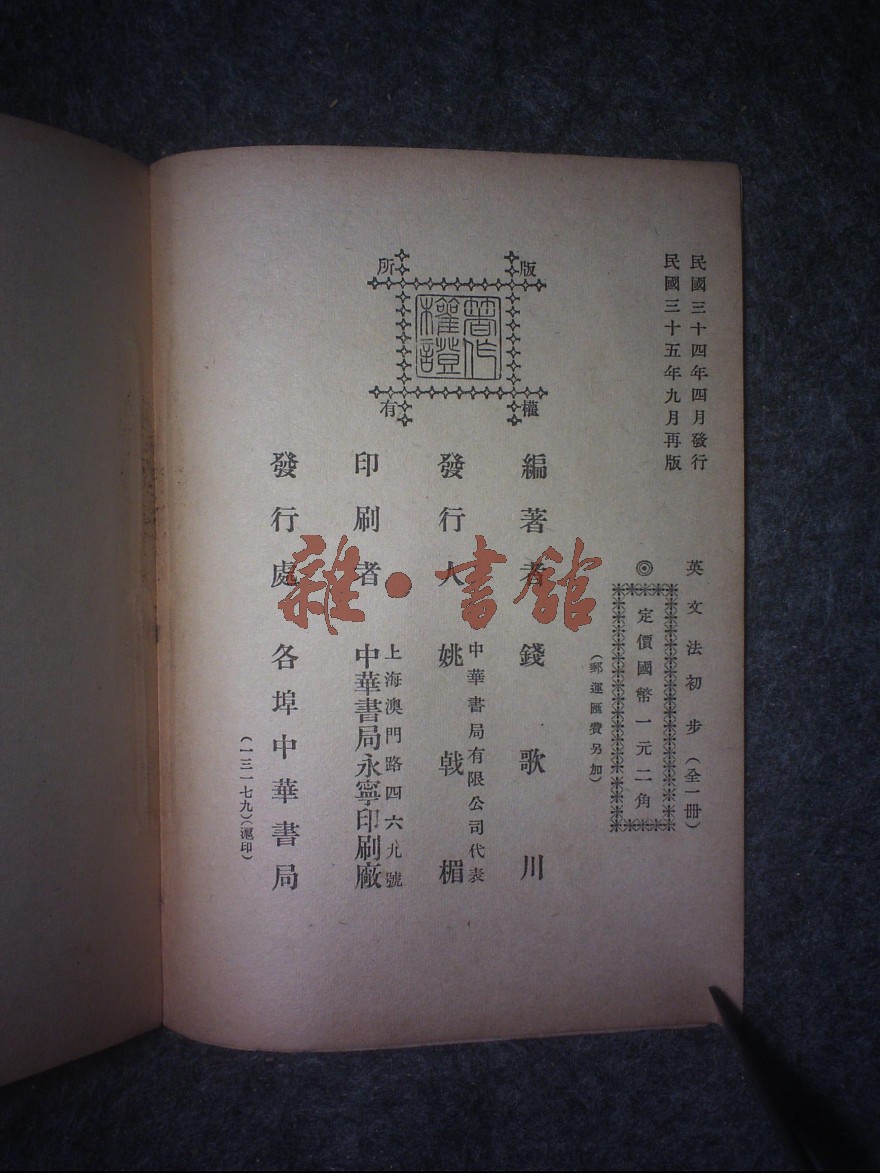 民國三十四年四月發行
民國三十五年九月再版
英文法初步（全一冊）
◎定價國幣一元二角
（郵運匯費另加）
版權所有
著作權證
編著者 錢歌川
發行人 中華書局有限公司代表
姚戟楣
印刷者 上海澳門路四六九號
中華書局永寧印刷廠
發行處 各埠中華書局
（一三一七九）（滬印）
雜·書館